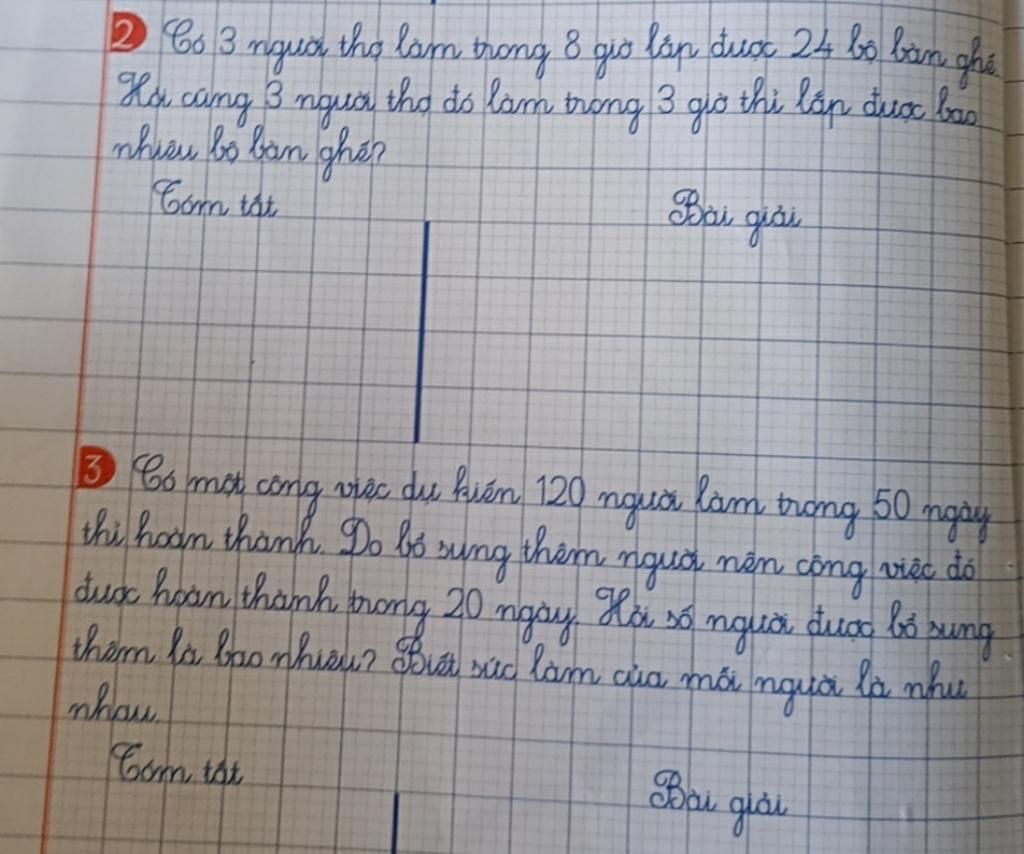 2 Có 3 người thợ làm trong 8 giờ lắp được 24 bộ bàn ghế.
Hỏi cũng 3 người thợ đó làm trong 3 giờ thì lắp được bao
nhiêu bộ bàn ghế?
Tóm tắt Bài giải
3 Có một công việc dự kiến 120 người làm trong 50 ngày
thì hoàn thành. Do bổ sung thêm người nên công việc đó
được hoàn thành trong 20 ngày. Hỏi số người được bổ sung
thêm là bao nhiêu? Biết sức làm của mỗi người là như
nhau.
Tóm tắt Bài giải